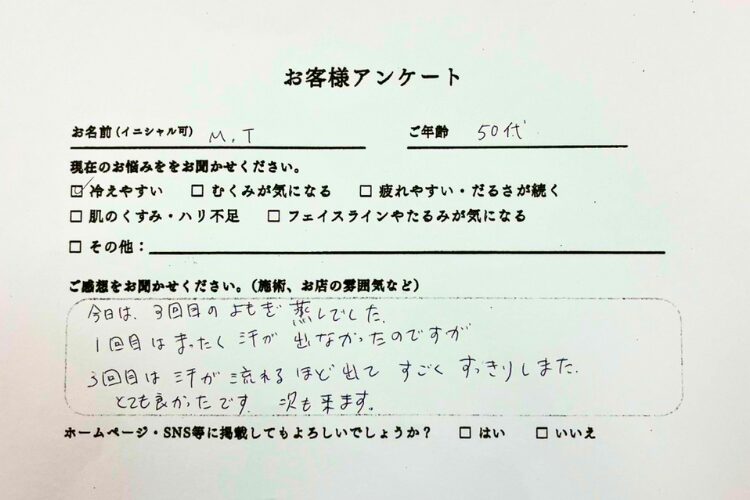 お客様アンケート
お名前（イニシャル可） M.T ご年齢 50代
現在のお悩みををお聞かせください。
☑ 冷えやすい □ むくみが気になる □ 疲れやすい・だるさが続く
□ 肌のくすみ・ハリ不足 □ フェイスラインやたるみが気になる
□ その他：
ご感想をお聞かせください。（施術、お店の雰囲気など）
今日は、3回目のよもぎ蒸しでした。
1回目はまったく汗が出なかったのですが
3回目は汗が流れるほど出てすごくすっきりしました.
とても良かったです 次も来ます。
ホームページ・SNS等に掲載してもよろしいでしょうか？ □ はい □ いいえ